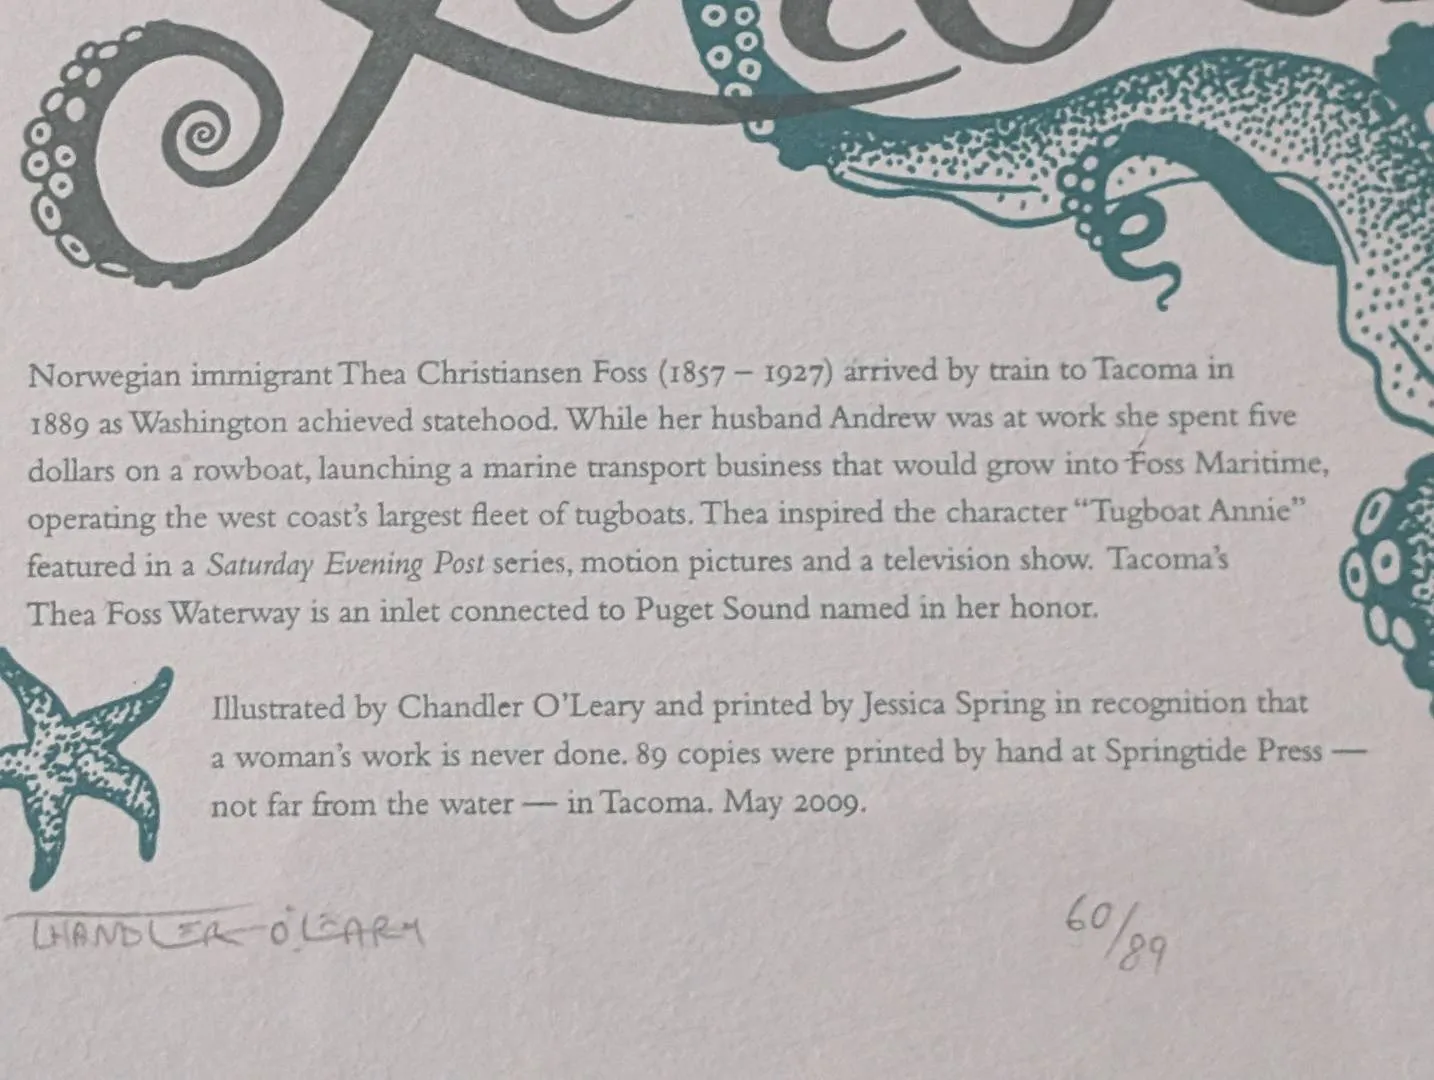 Norwegian immigrant Thea Christiansen Foss (1857 – 1927) arrived by train to Tacoma in
1889 as Washington achieved statehood. While her husband Andrew was at work she spent five
dollars on a rowboat, launching a marine transport business that would grow into Foss Maritime,
operating the west coast's largest fleet of tugboats. Thea inspired the character “Tugboat Annie”
featured in a Saturday Evening Post series, motion pictures and a television show. Tacoma's
Thea Foss Waterway is an inlet connected to Puget Sound named in her honor.
Illustrated by Chandler O'Leary and printed by Jessica Spring in recognition that
a woman's work is never done. 89 copies were printed by hand at Springtide Press —
not far from the water — in Tacoma. May 2009.
CHANDLER O'LEARY
60/89